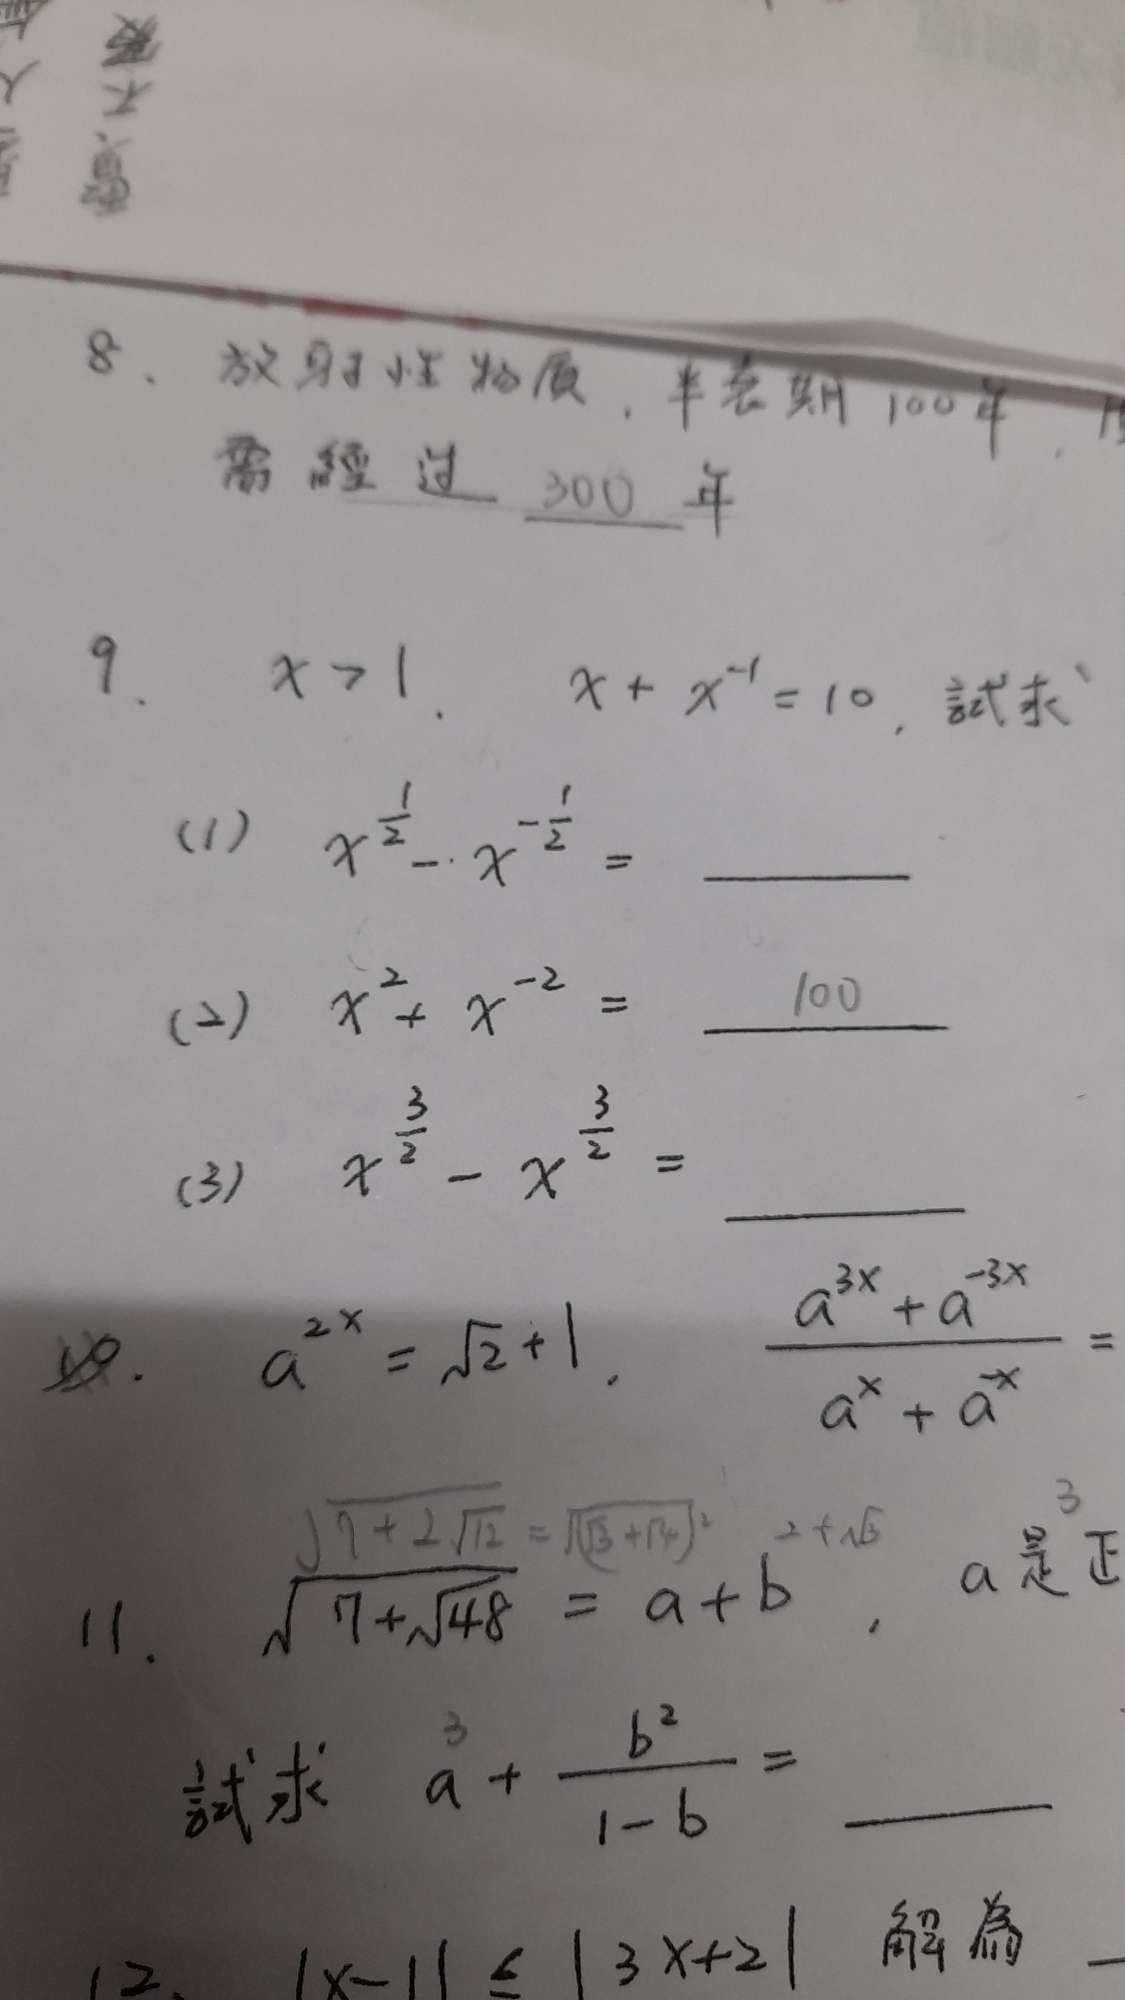 8. 放射性物质, 半衰期 100年,
需經过 300 年
9. x > 1, x + x⁻¹ = 10, 試求
(1) x^(1/2) - x^(-1/2) = ____
(2) x² + x⁻² = 100
(3) x^(3/2) - x^(3/2) = ____
10. a^(2x) = √2 + 1, (a^(3x) + a^(-3x))/(a^x + a^(-x)) =
√(7+2√12) = √(√3+√4)² 2+√3 3
11. √(7+√48) = a+b, a是正
3
試求 a + b²/(1-b) = ____
12. |x-1| ≤ |3x+2| 解為